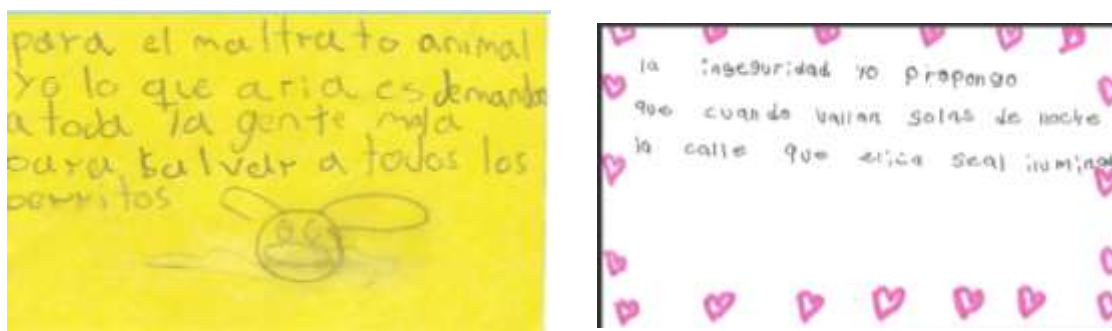 para el maltrato animal
Yo lo que aria es demandar
a toda la gente mala
para salvar a todos los
perritos
la inseguridad yo propongo
que cuando vallan solas de noche
la calle que esica seal